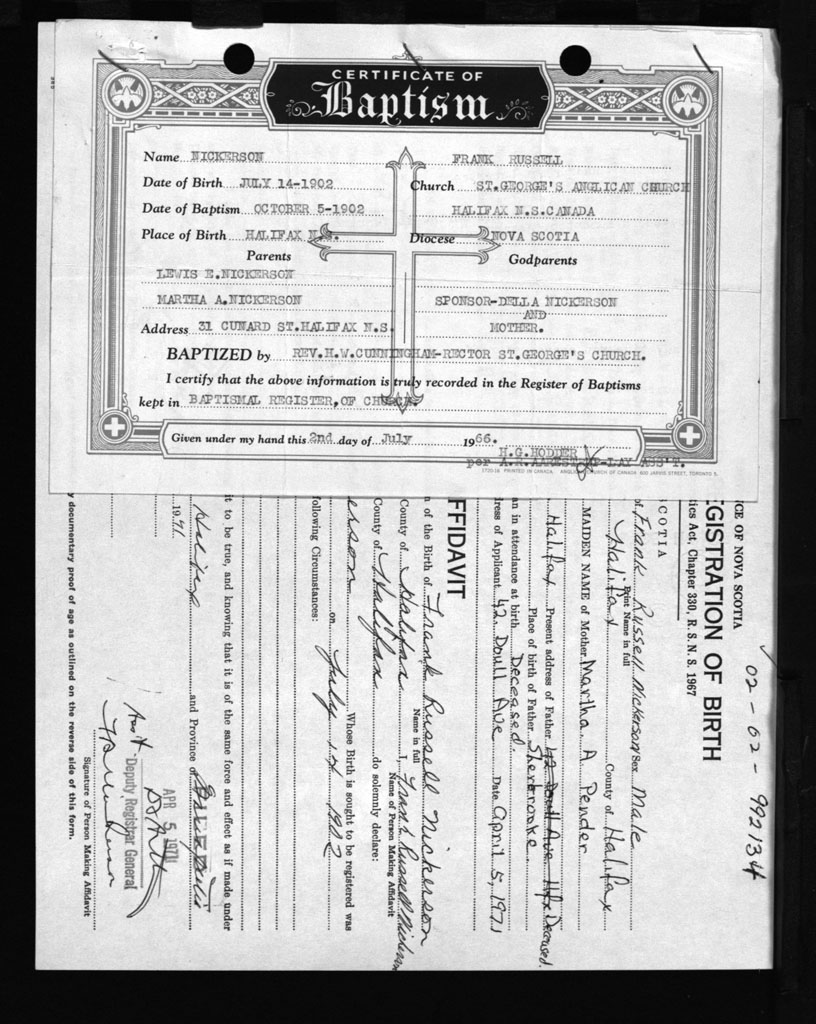 CERTIFICATE OF
Baptism
Name NICKERSON FRANK RUSSELL
Date of Birth JULY 14-1902 Church ST.GEORGE'S ANGLICAN CHURCH
Date of Baptism OCTOBER 5-1902 HALIFAX N.S.CANADA
Place of Birth HALIFAX N.S. Diocese NOVA SCOTIA
Parents Godparents
LEWIS E.NICKERSON
MARTHA A.NICKERSON SPONSOR-DELLA NICKERSON
AND
Address 31 CUNARD ST.HALIFAX N.S. MOTHER.
BAPTIZED by REV.H.W.CUNNINGHAM-RECTOR ST.GEORGE'S CHURCH.
I certify that the above information is truly recorded in the Register of Baptisms
kept in BAPTISMAL REGISTER,OF CHURCH.
Given under my hand this 2nd day of July 1966.
H.G.HODDER
per LAY ASS'T.
PRINTED IN CANADA CHURCH OF CANADA 600 JARVIS STREET, TORONTO 5.
02-02-992134
CE OF NOVA SCOTIA
EGISTRATION OF BIRTH
ics Act, Chapter 330, R. S. N. S. 1967
COTIA
of Frank Russell Nickerson Sex Male
Print Name in full
Halifax County of Halifax
MAIDEN NAME of Mother Martha A Pender
Halifax Present address of Father 42 Doull Ave Hfx Deceased
Place of birth of Father Sherbrooke
an in attendance at birth Deceased.
ress of Applicant 42 Doull Ave Date April 5, 1971
FFIDAVIT
n of the Birth of Frank Russell Nickerson
Name in full
County of Halifax I, Frank Russell Nickerson
Name of Person Making Affidavit
County of Halifax do solemnly declare:
erson Whose Birth is sought to be registered was
on July 14 1902
following Circumstances:
it to be true, and knowing that it is of the same force and effect as if made under
and Province of
1971
APR 5 1971
Deputy Registrar General
Signature of Person Making Affidavit
y documentary proof of age as outlined on the reverse side of this form.